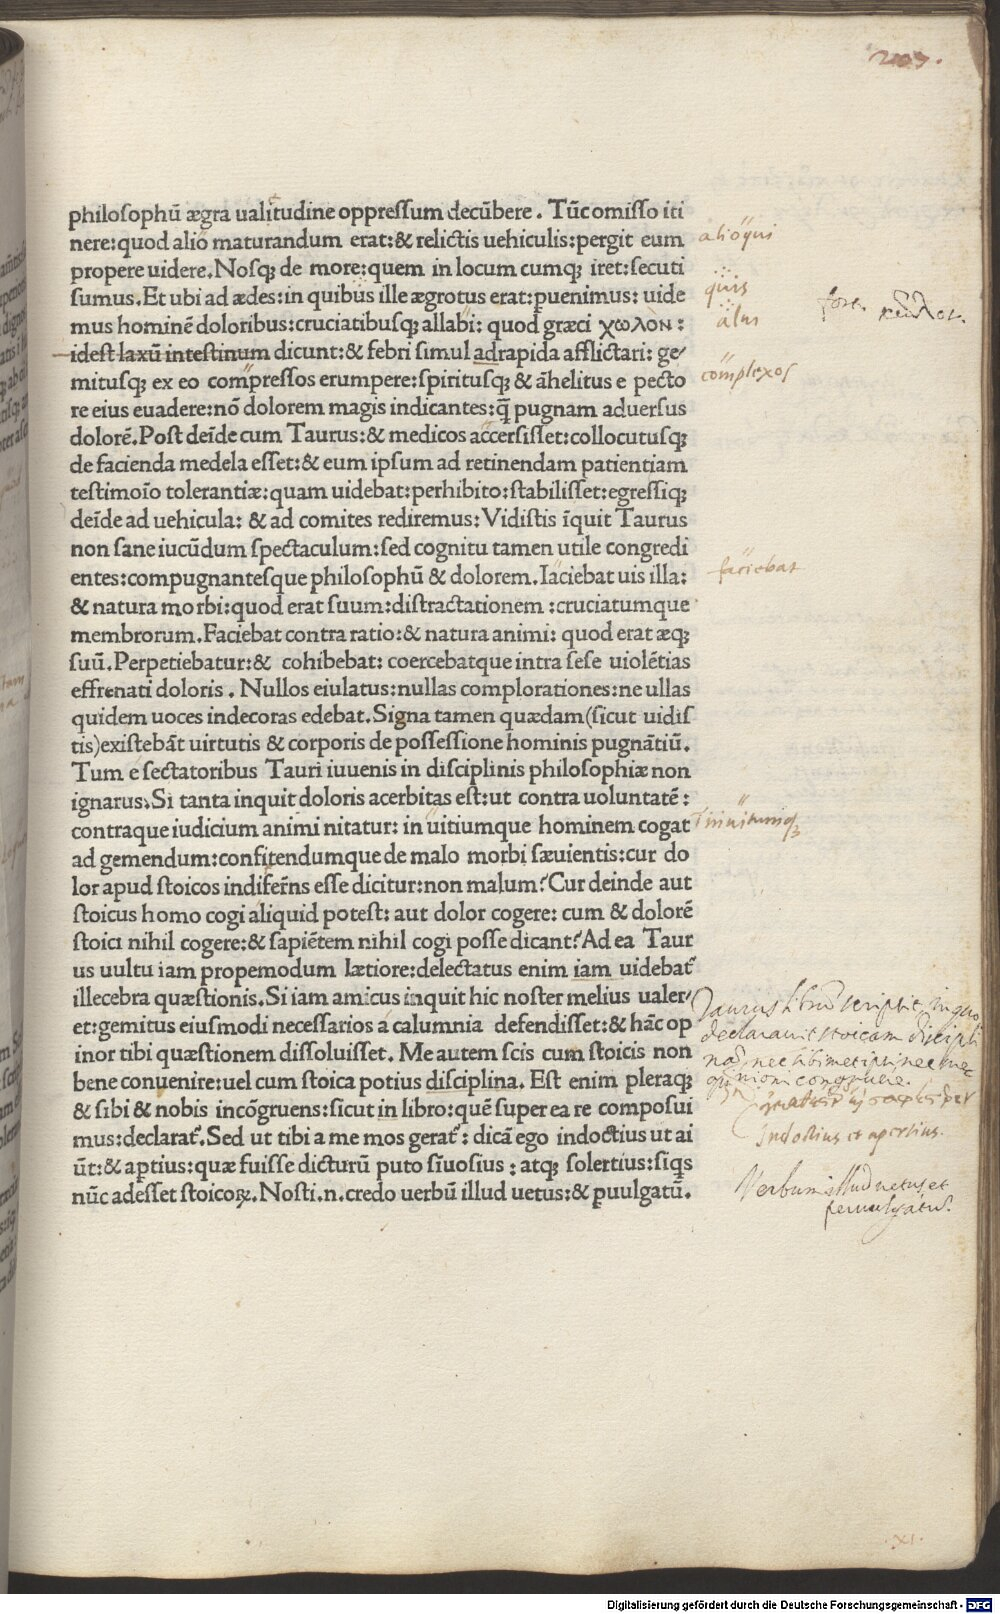 207.
philosophū ægra ualitudine oppressum decūbere. Tūc omisso iti
nere: quod alio maturandum erat: & relictis uehiculis: pergit eum
propere uidere. Nosq; de more: quem in locum cumq; iret: secuti
sumus. Et ubi ad ædes: in quibus ille ægrotus erat: puenimus: uide
mus hominē doloribus: cruciatibusq; allabi: quod græci χωλον:
idest laxū intestinum dicunt: & febri simul ad rapida afflictari: ge
mitusq; ex eo compressos erumpere: spiritusq; & āhelitus e pecto
re eius euadere: nō dolorem magis indicantes: q̄ pugnam aduersus
dolorē. Post deīde cum Taurus: & medicos accersisset: collocutusq;
de facienda medela esset: & eum ipsum ad retinendam patientiam
testimoīo tolerantiæ: quam uidebat: perhibito: stabilisset: egressiq;
deīde ad uehicula: & ad comites rediremus: Vidistis īquit Taurus
non sane iucūdum spectaculum: sed cognitu tamen utile congredi
entes: compugnantesque philosophū & dolorem. Iaciebat uis illa:
& natura morbi: quod erat suum: distractationem: cruciatumque
membrorum. Faciebat contra ratio: & natura animi: quod erat æq;
suū. Perpetiebatur: & cohibebat: coercebatque intra sese uiolētias
effrenati doloris. Nullos eiulatus: nullas complorationes: ne ullas
quidem uoces indecoras edebat. Signa tamen quædam (sicut uidis
tis) existebāt uirtutis & corporis de possessione hominis pugnātiū.
Tum e sectatoribus Tauri iuuenis in disciplinis philosophiæ non
ignarus. Si tanta inquit doloris acerbitas est: ut contra uoluntatē:
contraque iudicium animi nitatur: in uitiumque hominem cogat
ad gemendum: confitendumque de malo morbi sæuientis: cur do
lor apud stoicos indiferñs esse dicitur: non malum? Cur deinde aut
stoicus homo cogi aliquid potest: aut dolor cogere: cum & dolorē
stoici nihil cogere: & sapiētem nihil cogi posse dicant? Ad ea Taur
us uultu iam propemodum lætiore: delectatus enim iam uidebat᷑
illecebra quæstionis. Si iam amicus inquit hic noster melius ualer
et: gemitus eiusmodi necessarios a calumnia defendisset: & hāc op
inor tibi quæstionem dissoluisset. Me autem scis cum stoicis non
bene conuenire: uel cum stoica potius disciplina. Est enim pleraq;
& sibi & nobis incōgruens: sicut in libro: quē super ea re composui
mus: declarat᷑. Sed ut tibi a me mos gerat᷑: dicā ego indoctius ut ai
ūt: & aptius: quæ fuisse dicturū puto sīuosius: atq; solertius: siq̄s
nūc adesset stoicoꝝ. Nosti. n. credo uerbū illud uetus: & puulgatū.
alioqui
quis
alui
fort. κῶλον.
complexos
faciebat
inuitumq;
Taurus librū scripsit in quo
declarauit stoicam discipli
nā nec sibimet ipsi nec
congruere.
indoctius et apertius.
Verbum illud uetus et
peruulgatū.
.XI.
Digitalisierung gefördert durch die Deutsche Forschungsgemeinschaft - DFG